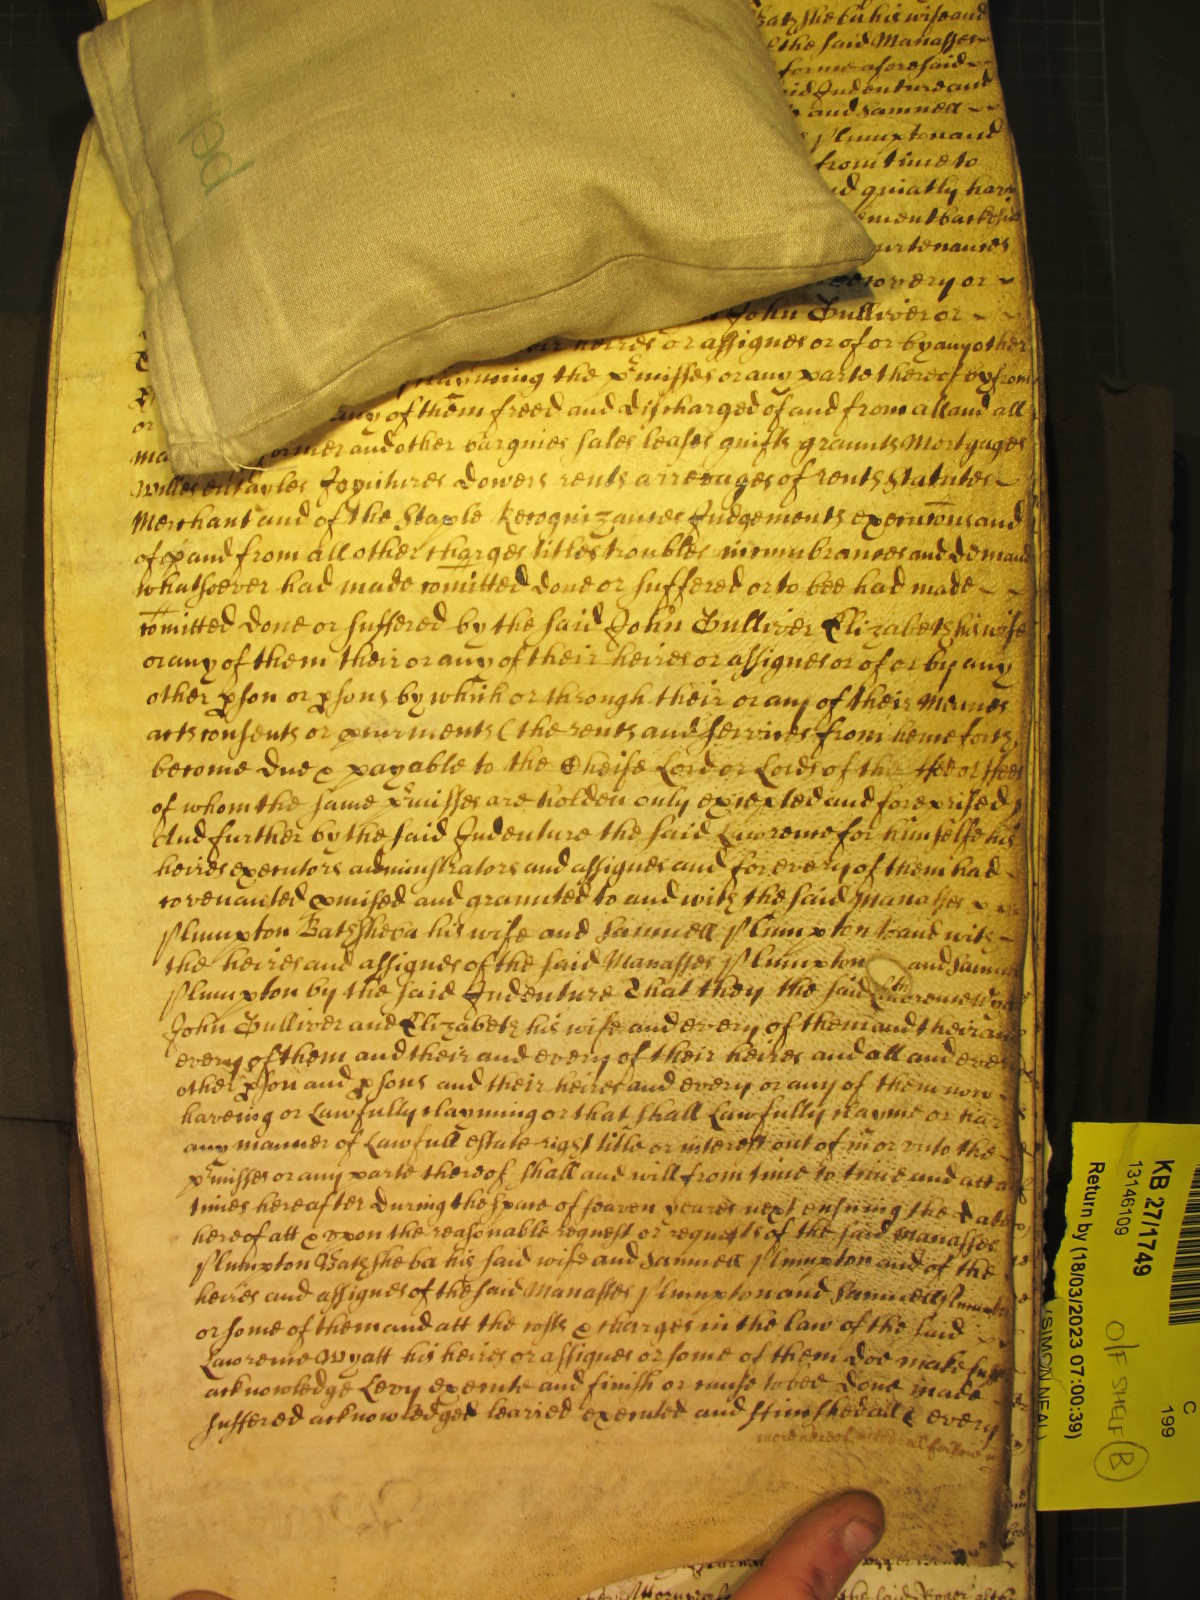 Bathsheba his wife and
the said Manasses
forme aforesaid
said Indenture and
and Samuell
Plumpton and
from time to
and quiatly have
urtenances
recovery or
John Gulliver or
heires or assignes or of or by any other
the p'misses or any parte thereof by from
any of them freed and discharged of and from all and all
former and other bargnies sales leases guifts graunts Mortgages
Willes entayles Joyntures dowers rents arrerages of rents Statutes
Merchant and of the Staple Recognizances Judgements execucons and
of & and from all other charges titles troubles incumbrances and demand
whatsoever had made comitted done or suffered or to bee had made
comitted done or suffered by the said John Gulliver Elizabeth his wife
or any of them their or any of their heires or assignes or of or by any
other pson or psons by which or through their or any of their Meanes
acts consents or pcurments (the rents and services from hence forth
become due & payable to the Cheife Lord or Lords of the ffee or ffees
of whom the same p'misses are holden only excepted and foreprised)
And further by the said Indenture the said Lawrence for himselfe his
heires executors administrators and assignes and for every of them had
covenanted pmised and graunted to and with the said Manasses
Plumpton Bathsheba his wife and Samuell Plumpton & and with
the heires and assignes of the said Manasses Plumpton and Samuell
Plumpton by the said Indenture That they the said Lawrence Wyatt
John Gulliver and Elizabeth his wife and every of them and their and
every of them and their and every of their heires and all and every
other pson and psons and their heires and every or any of them now
haveing or Lawfully clayming or that shall Lawfully clayme or have
any manner of Lawfull estate right title or interest out of in or unto the
p'misses or any parte thereof shall and will from time to time and att all
times hereafter during the space of seaven yeares next ensuing the date
hereof att & upon the reasonable request or requests of the said Manasses
Plumpton Bathsheba his said wife and Samuell Plumpton and of the
heires and assignes of the said Manasses Plumpton and Samuell Plumpton
or some of them and att the costs & charges in the law of the said
Lawrence Wyatt his heires or assignes or some of them doe make suffer
acknowledge Levy execute and finish or cause to bee done made
suffered acknowledged leavied executed and ffinished all & every
KB 27/1749
13146109
Return by (18/03/2023 07:00:39)
(SIMON NEAL)
O/F SHELF (B)
C
199